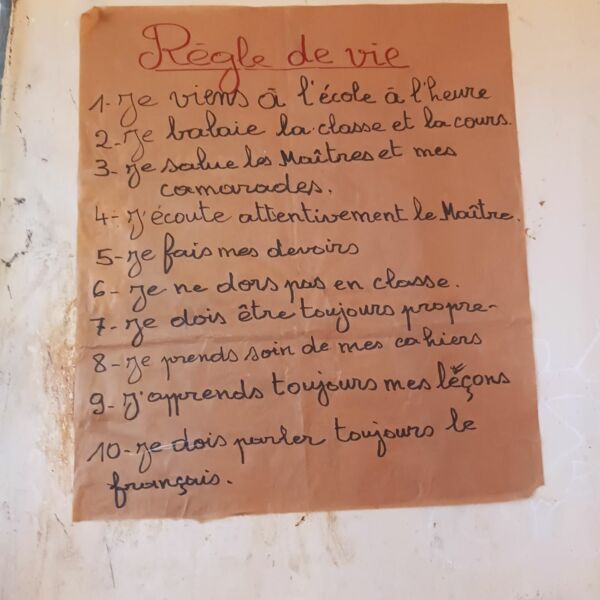 Règle de vie
1- Je viens à l'école à l'heure
2- Je balaie la classe et la cours.
3- Je salue les Maîtres et mes
camarades.
4- J'écoute attentivement le Maître.
5- Je fais mes devoirs
6- Je ne dors pas en classe.
7- Je dois être toujours propre-
8- Je prends soin de mes cahiers
9- J'apprends toujours mes leçons
10- Je dois parler toujours le
français.